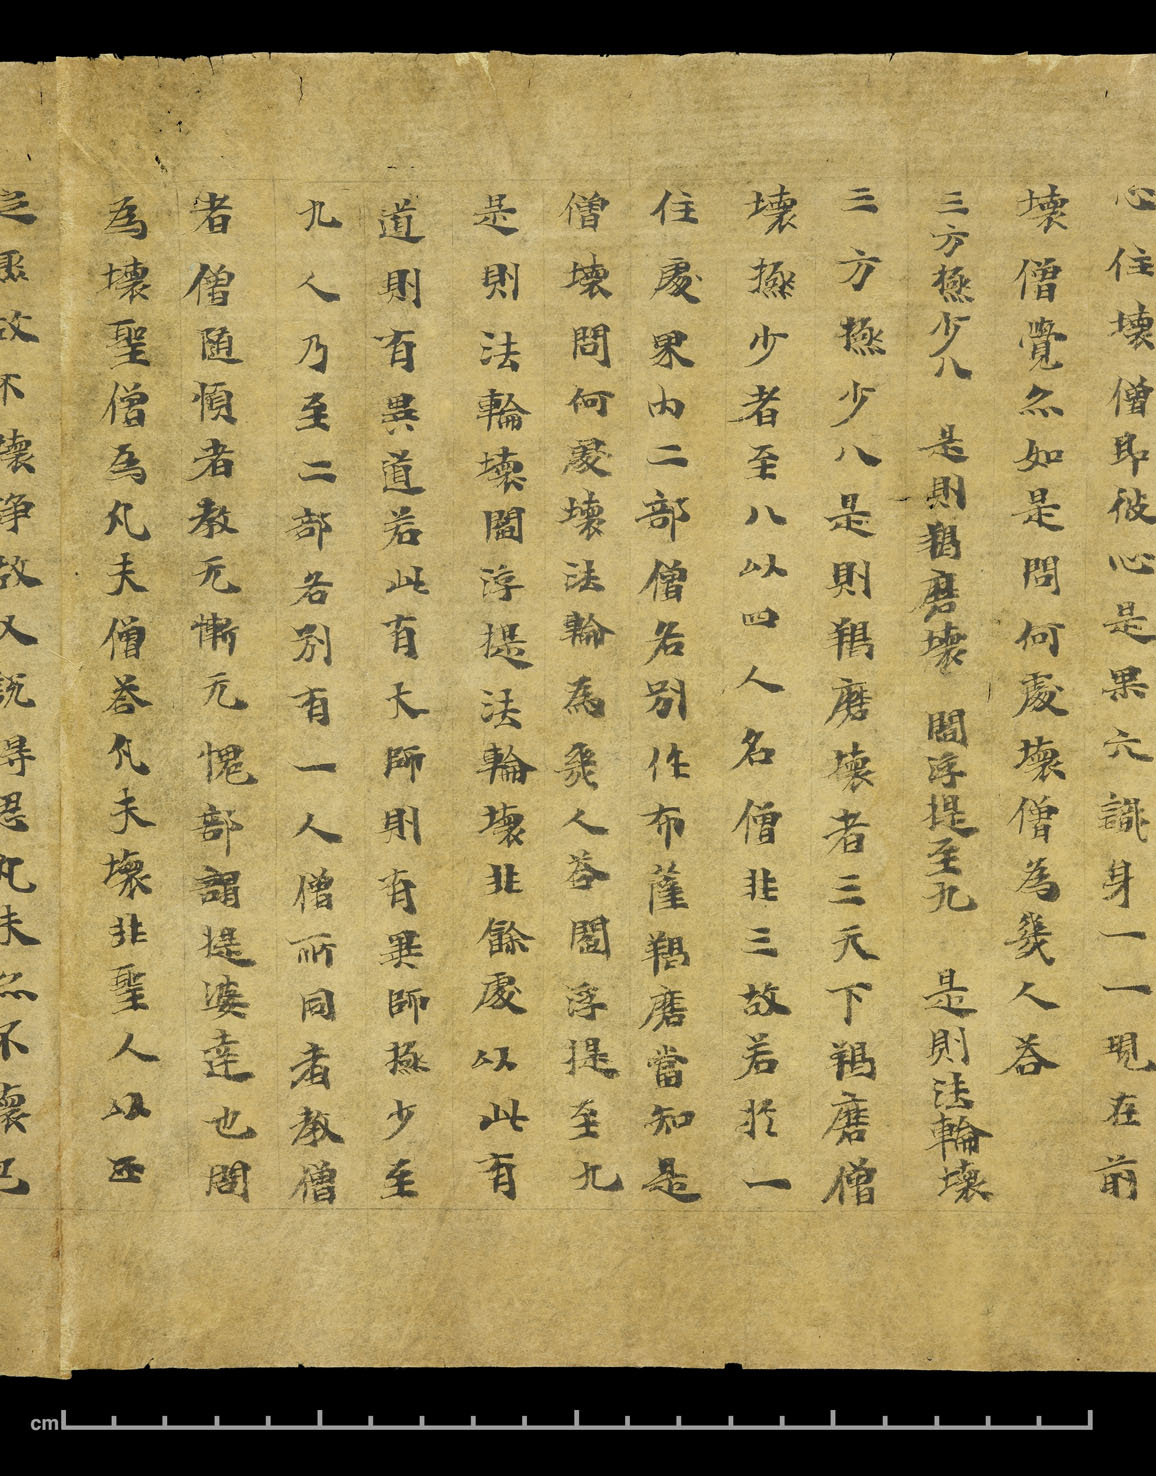 心住壞僧即彼心是果六識身一一現在前
壞僧覺尒如是問何處壞僧為幾人荅
三方極少八　是則羯磨壞　閻浮提至九　是則法輪壞
三方極少八是則羯磨壞者三天下羯磨僧
壞極少者至八以四人名僧非三故若於一
住處界內二部僧各別作布薩羯磨當知是
僧壞問何處壞法輪為幾人荅閻浮提至九
是則法輪壞閻浮提法輪壞非餘處以此有
道則有異道若此有大師則有異師極少至
九人乃至二部各別有一人僧所同者教僧
者僧随順者教无慚无愧部謂提婆達也問
為壞聖僧為凡夫僧荅凡夫壞非聖人以正
定聚故不壞淨故又說得忍凡夫尒不壞已